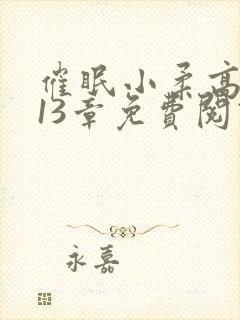 催眠小柔高
13章免費閱
永嘉